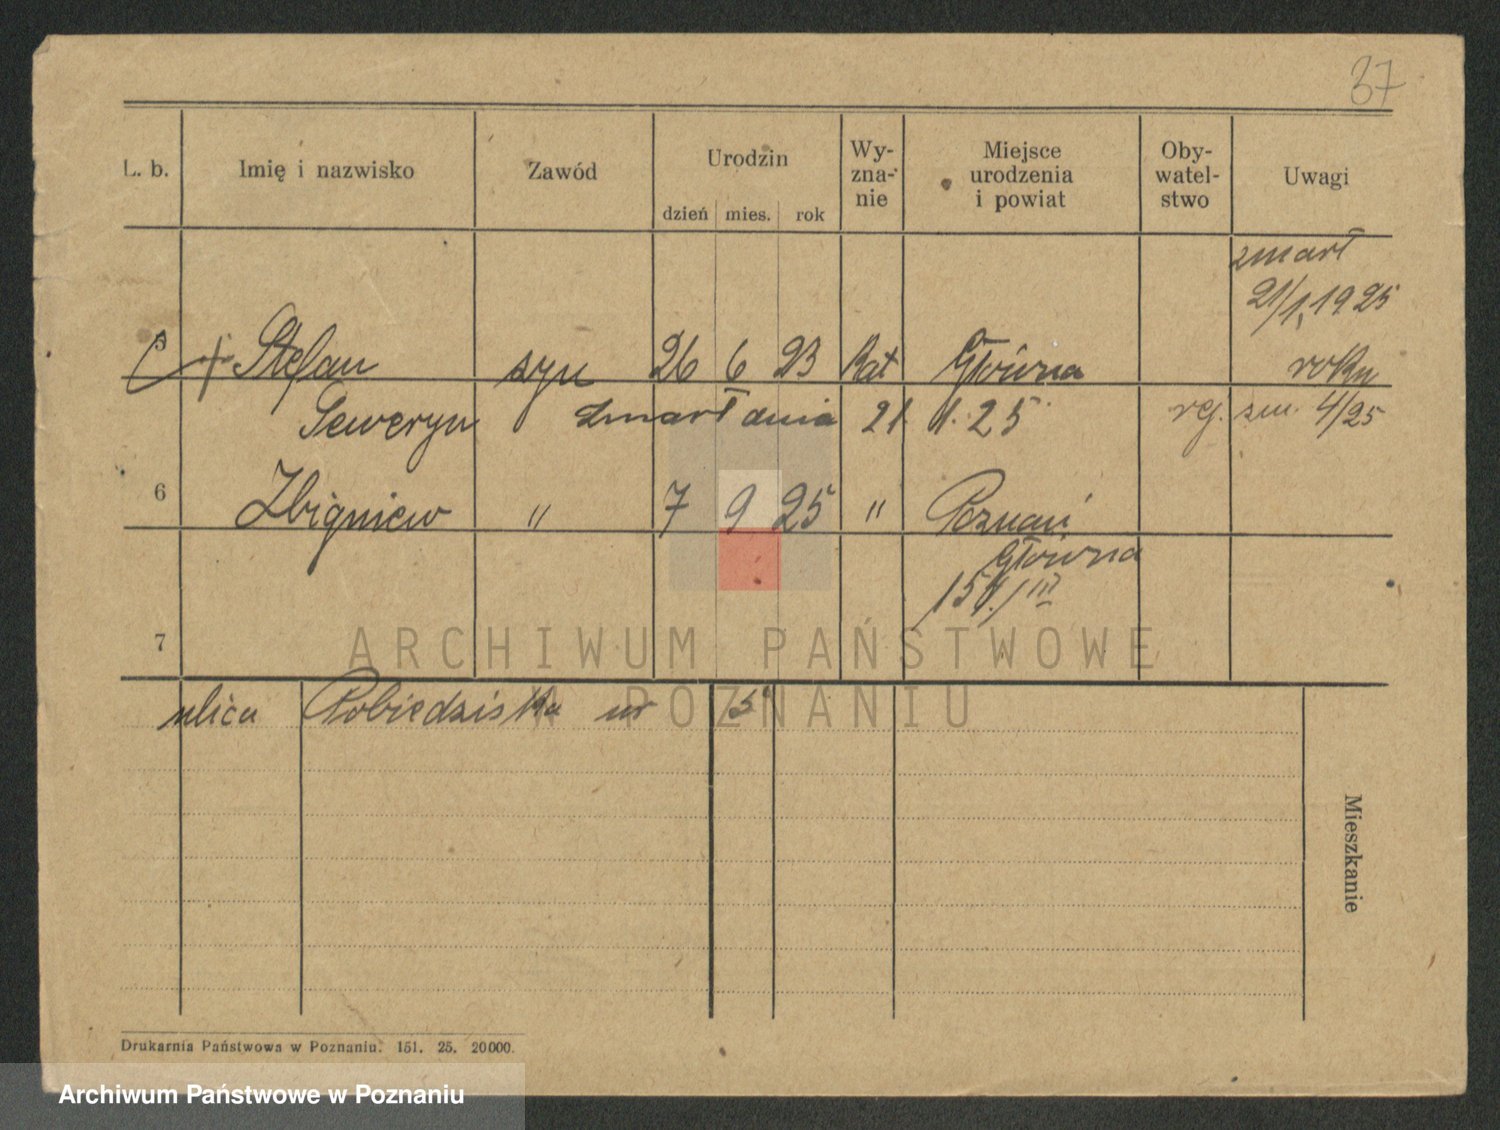 37
L. b. Imię i nazwisko Zawód Urodzin Wy-zna-nie Miejsce urodzenia i powiat Oby-watel-stwo Uwagi
dzień mies. rok
zmarł
21/1, 1925
5 + Stefan syn 26 6 23 kat Główna roku
Seweryn zmarł dnia 21. 1. 25 rej. zm. 4/25
6 Zbigniew " 7 9 25 " Poznań
Główna
154./III
7
ARCHIWUM PAŃSTWOWE
W POZNANIU
ulica Pobiedziska nr 5
Mieszkanie
Drukarnia Państwowa w Poznaniu. 151. 25. 20000.
Archiwum Państwowe w Poznaniu